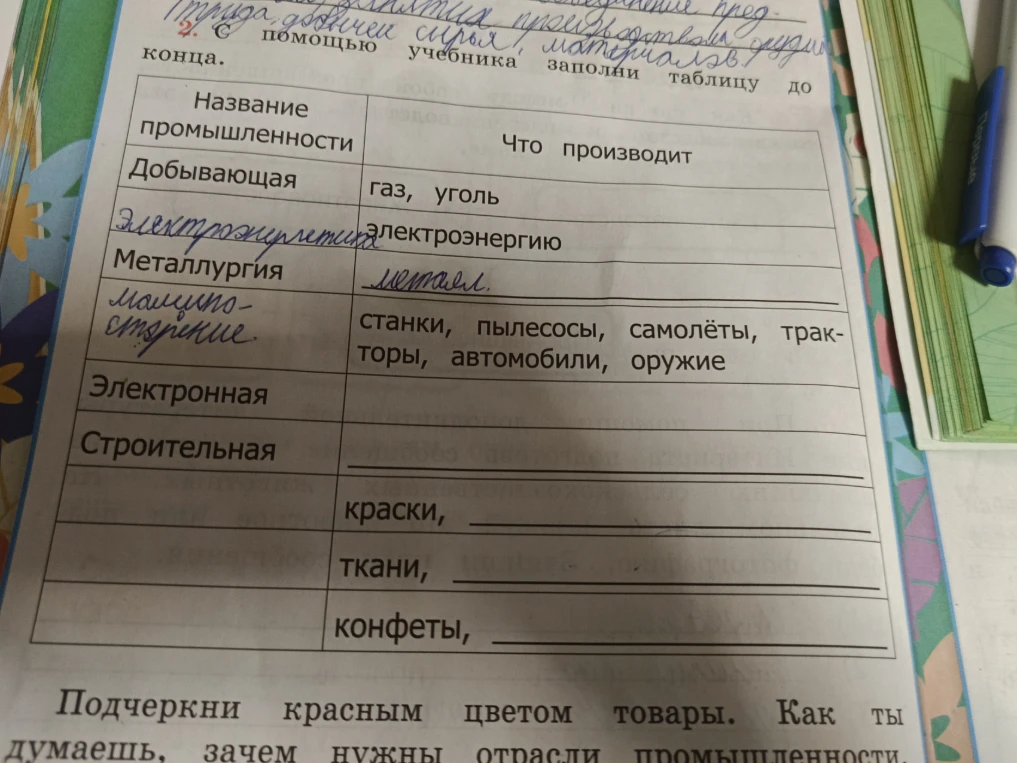 труда, добычей сырья, материалов,
2. С помощью учебника заполни таблицу до
конца.
Название
промышленности
Что производит
Добывающая
газ, уголь
Электроэнергетика
электроэнергию
Металлургия
металл.
машино-
строение.
станки, пылесосы, самолёты, трак-
торы, автомобили, оружие
Электронная
Строительная
краски,
ткани,
конфеты,
Подчеркни красным цветом товары. Как ты
думаешь, зачем нужны отрасли промышленности,